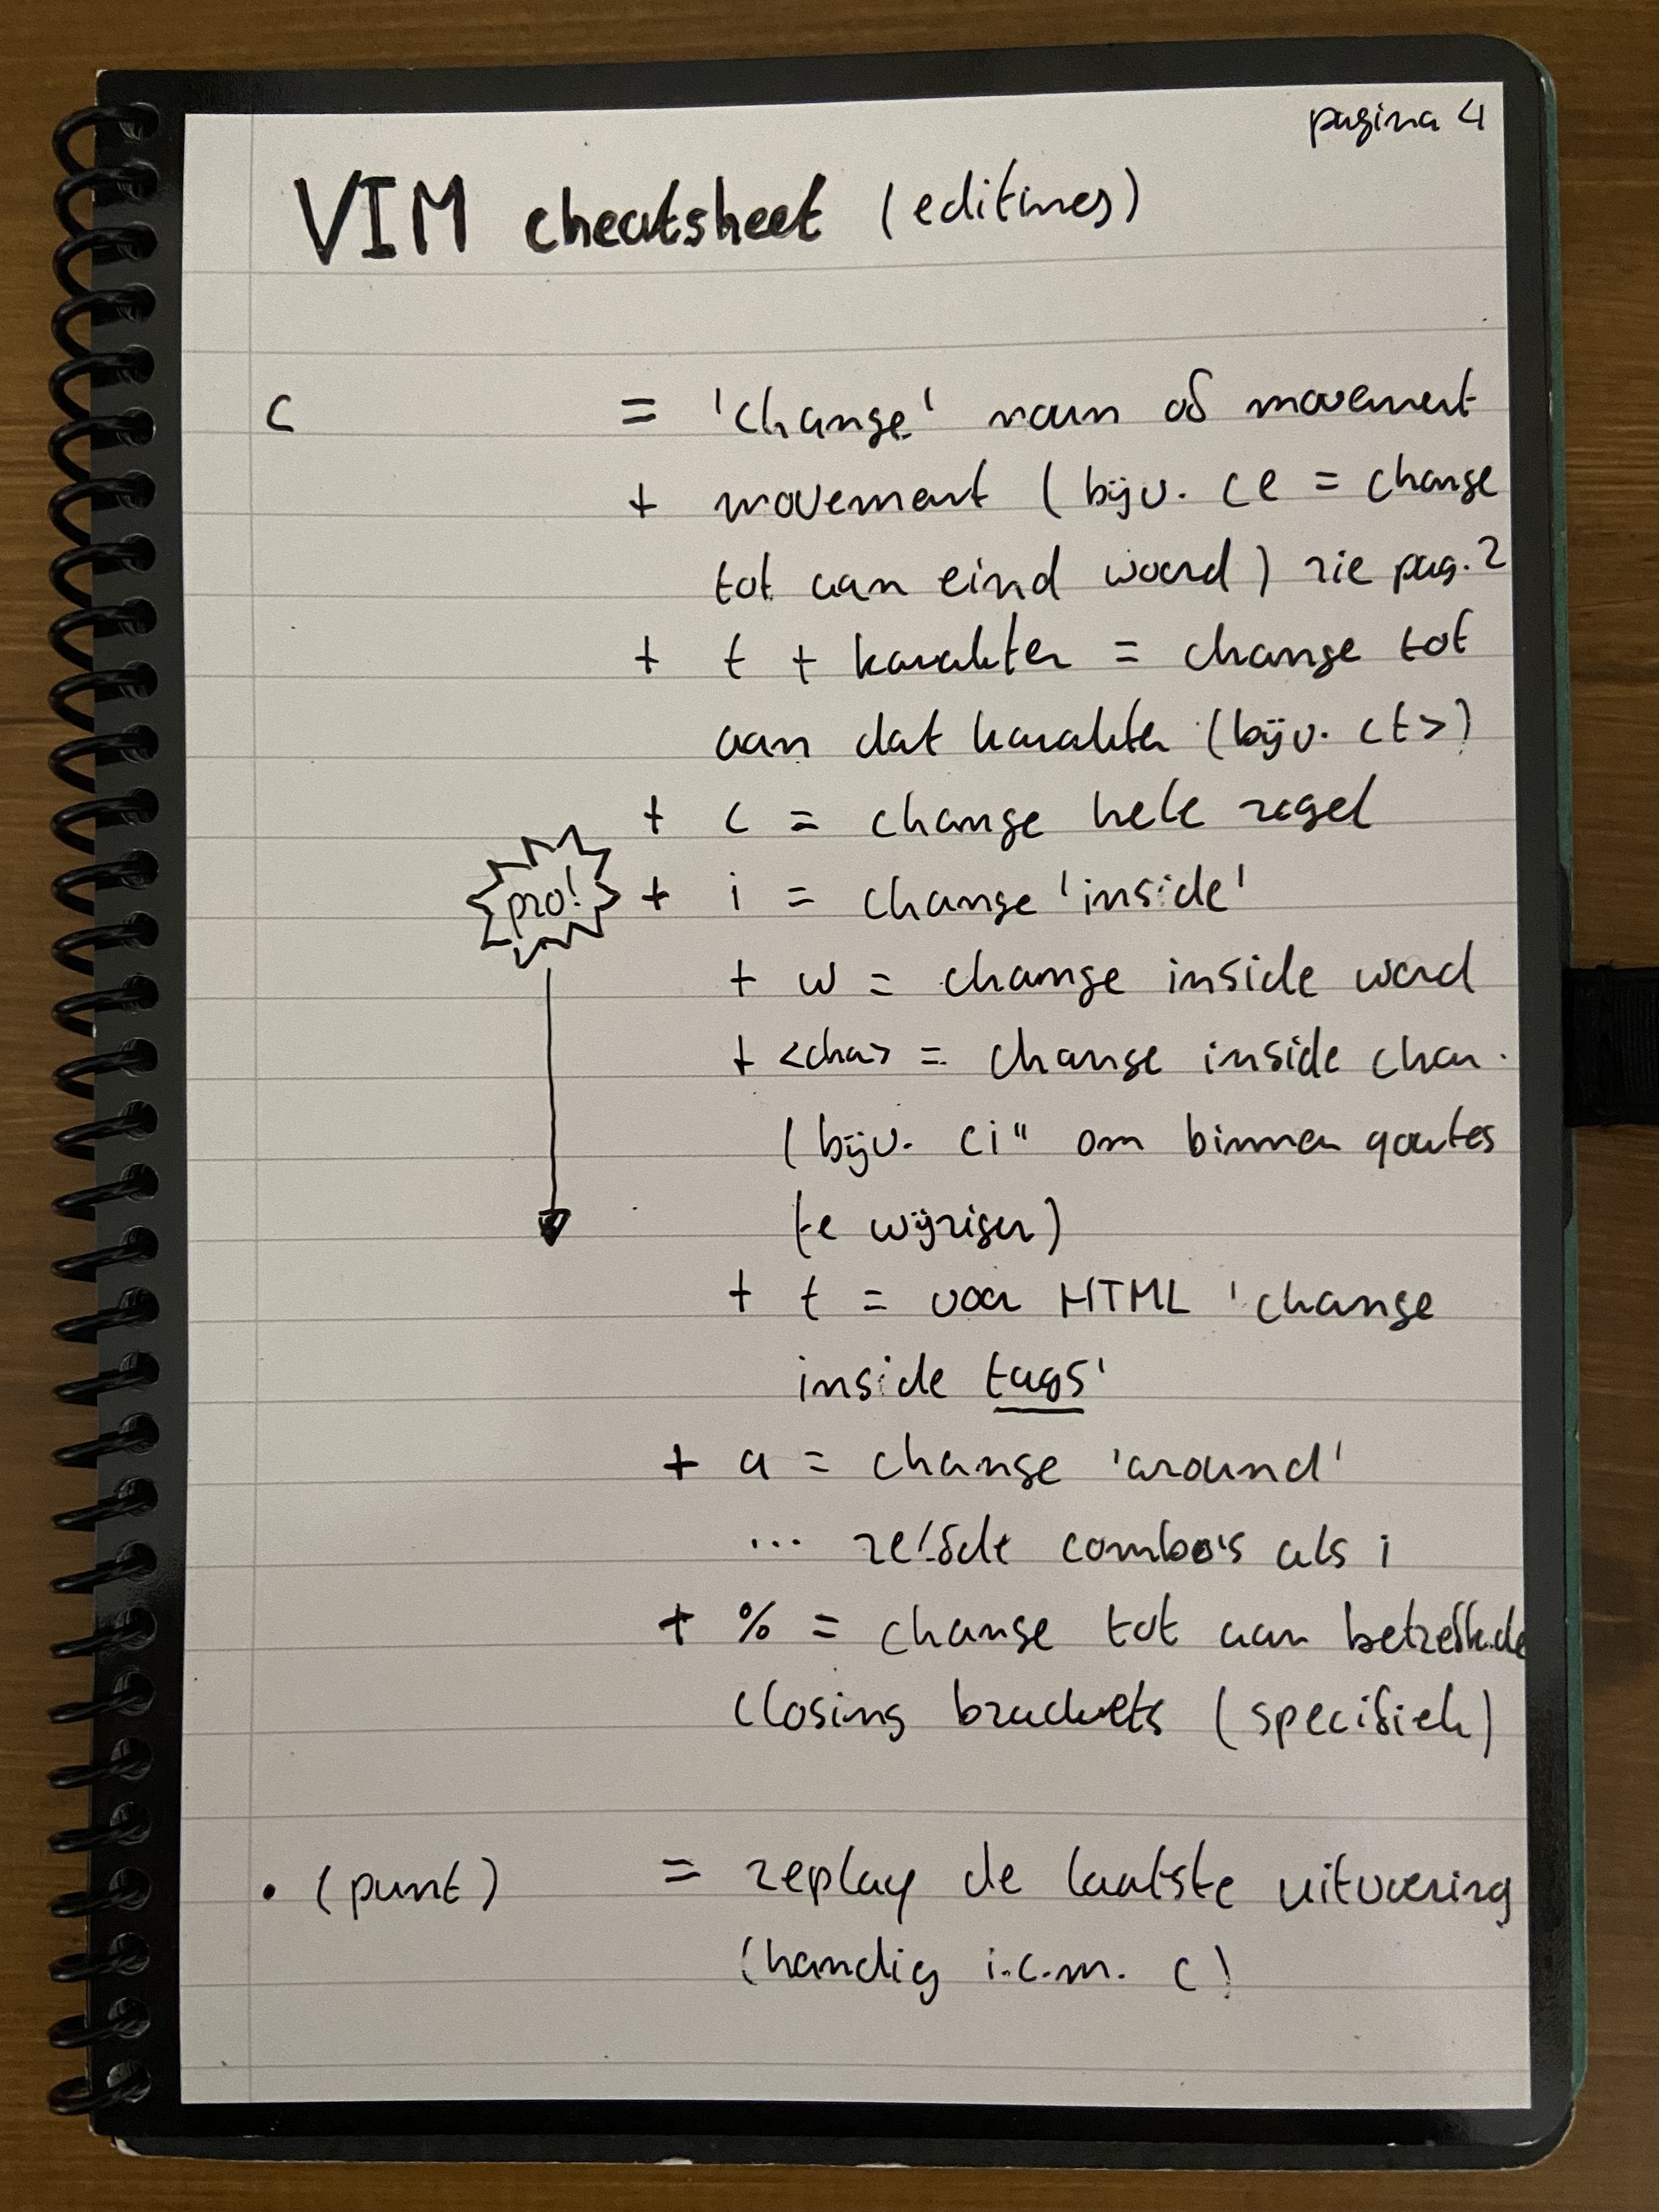 pagina 4
VIM cheatsheet (editing)
c = 'change' noun of movement
+ movement (bijv. ce = change
tot aan eind woord) zie pag. 2
+ t + karakter = change tot
aan dat karakter (bijv. ct>)
+ c = change hele regel
pro! + i = change 'inside'
+ w = change inside word
+ <char> = change inside char.
(bijv. ci" om binnen qoutes
te wijzigen)
+ t = voor HTML 'change
inside tags'
+ a = change 'around'
... zelfde combo's als i
+ % = change tot aan betreffende
closing brackets (specifiek)
. (punt) = replay de laatste uitvoering
(handig i.c.m. c)